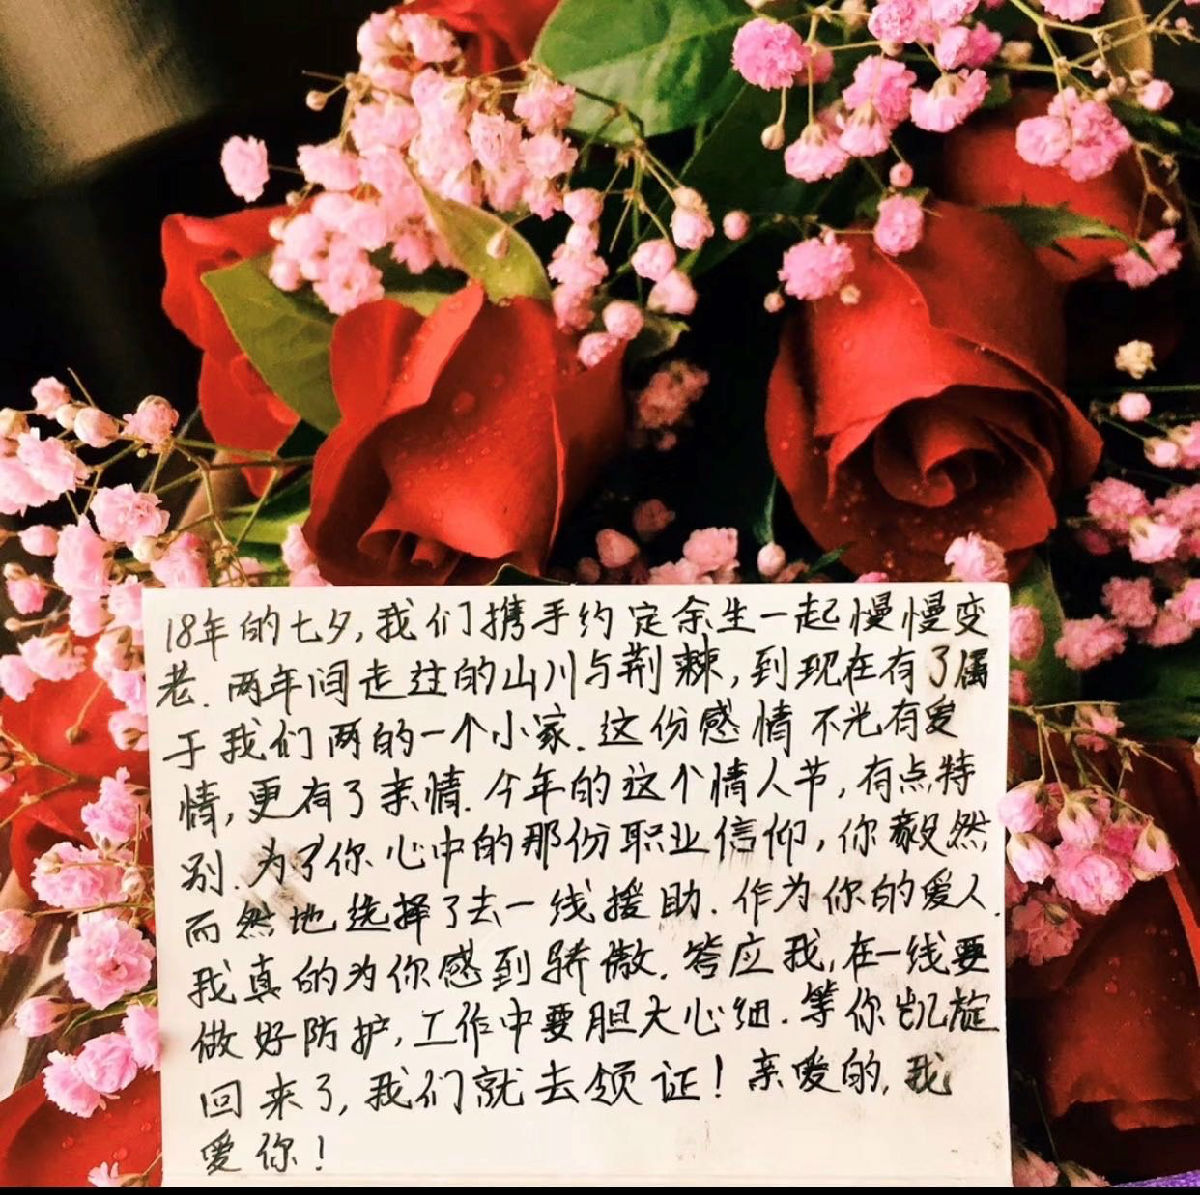 18年的七夕,我们携手约定余生一起慢慢变
老.两年间走过的山川与荆棘,到现在有了属
于我们两的一个小家.这份感情不光有爱
情,更有了亲情.今年的这个情人节,有点特
别.为了你心中的那份职业信仰,你毅然
而然地选择了去一线援助.作为你的爱人.
我真的为你感到骄傲.答应我,在一线要
做好防护,工作中要胆大心细.等你凯旋
回来了,我们就去领证!亲爱的,我
爱你!